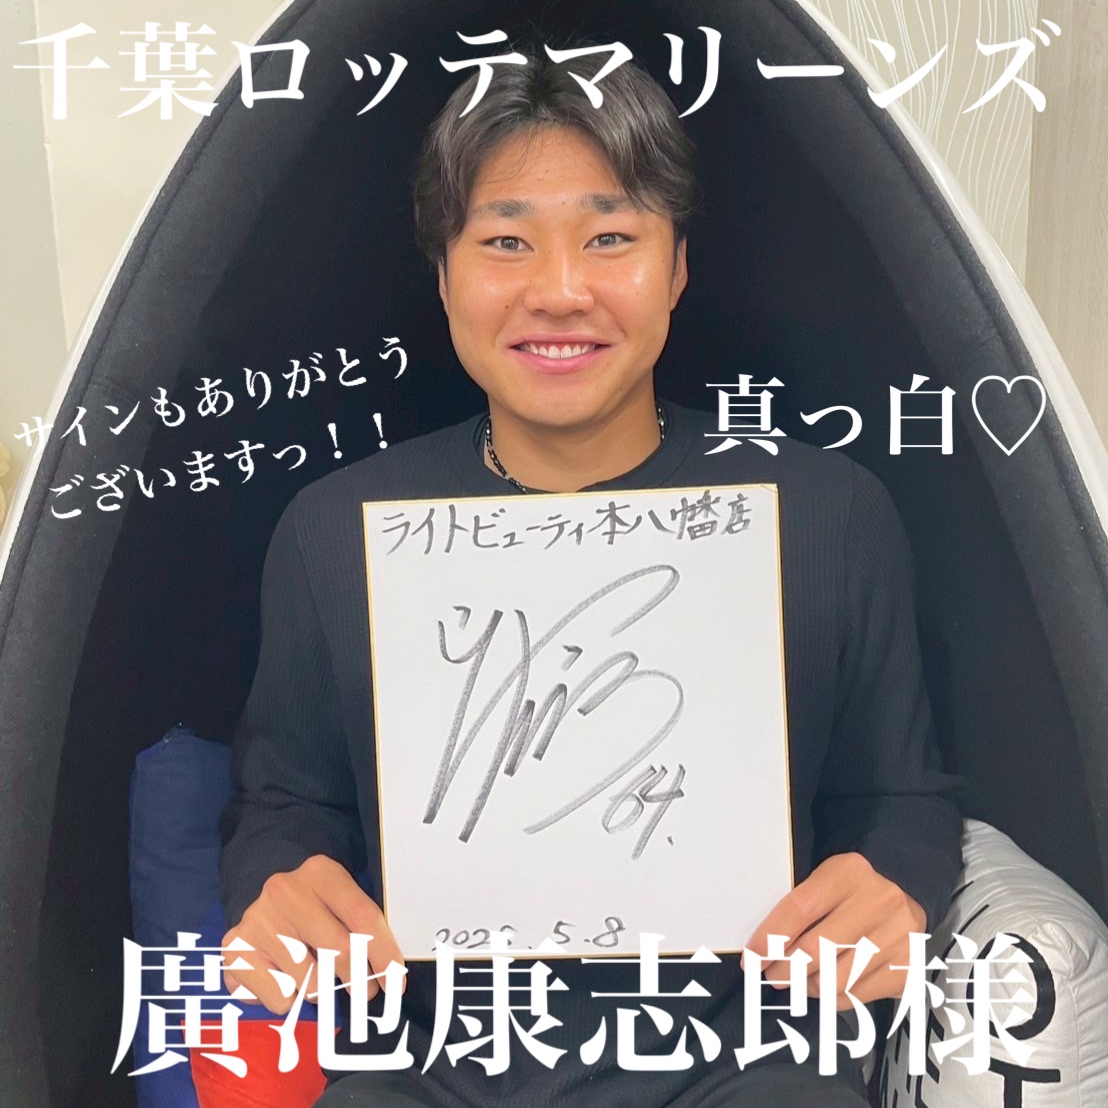 千葉ロッテマリーンズ
サインもありがとう
ございますっ！！
真っ白♡
ライトビューティ本八幡店
64.
2025.5.8
廣池康志郎様